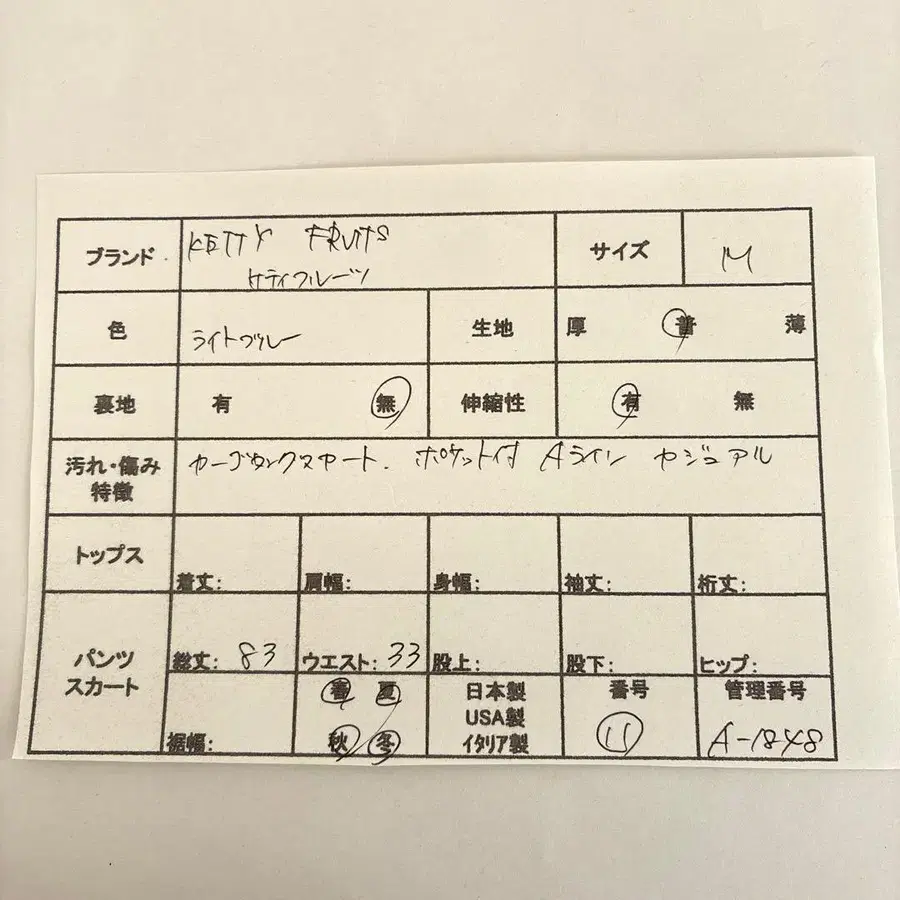 ブランド KETTY FRUITS サイズ M
ケティフルーツ
色 ライトブルー 生地 厚 普 薄
裏地 有 無 伸縮性 有 無
汚れ・傷み カーゴタックスカート. ポケット付 Aライン カジュアル
特徴
トップス 着丈: 肩幅: 身幅: 袖丈: 裄丈:
パンツ
スカート 総丈: 83 ウエスト: 33 股上: 股下: ヒップ:
裾幅: 春 夏 日本製 番号 管理番号
USA製
秋 冬 イタリア製 11 A-1848